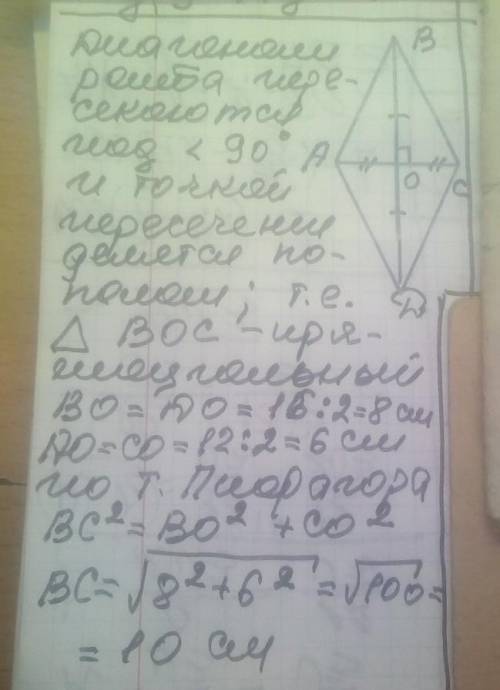 Диагонали
ромба пере-
секаются
под < 90°
и точкой
пересечения
делятся по-
полам; т.е.
△ BOC - пря-
моугольный
BO = DO = 16 : 2 = 8 см
AO = CO = 12 : 2 = 6 см
по т. Пифагора
BC² = BO² + CO²
BC = √8² + 6² = √100 =
= 10 см
B
A
O
C
D